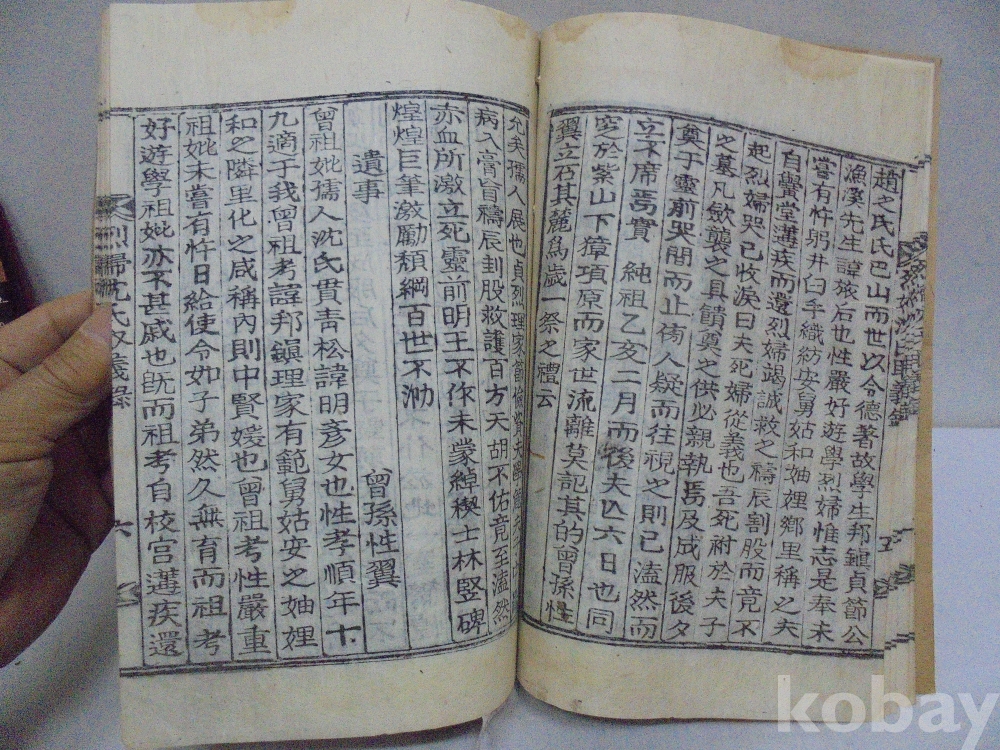 趙之氏氏巴山而世以令德著故學生邦鎭貞節公
漁溪先生諱旅后也性嚴好遊學烈婦惟志是奉未
嘗有忤躬井臼手織紡安舅姑和妯娌鄕里稱之夫
自黌堂遘疾而還烈婦竭誠救之禱辰割股而竟不
起烈婦哭已收淚曰夫死婦從義也吾死祔於夫子
之墓凡斂襲之具饋奠之供必親執焉及成服後夕
奠于靈前哭間而止傍人疑而往視之則已溘然而
立不席焉實 純祖乙亥二月而後夫亾六日也同
窆於紫山下獐項原而家世流離莫記其的曾孫性
翼立石其麓爲歲一祭之禮云
允矣孺人展也貞烈理家
病入膏肓禱辰刲股救護百方天胡不佑竟至溘然
亦血所激立死靈前明王不作未蒙綽楔士林竪碑
煌煌巨筆激勵頹綱百世不泐
遺事 曾孫性翼
曾祖妣孺人沈氏貫靑松諱明彥女也性孝順年十
九適于我曾祖考諱邦鎭理家有範舅姑安之妯娌
和之隣里化之咸稱內則中賢媛也曾祖考性嚴重
祖妣未嘗有忤日給使令如子弟然久無育而祖考
好遊學祖妣亦不甚戚也旣而祖考自校宮遘疾還
烈婦沈氏 義錄 六
五
kobay